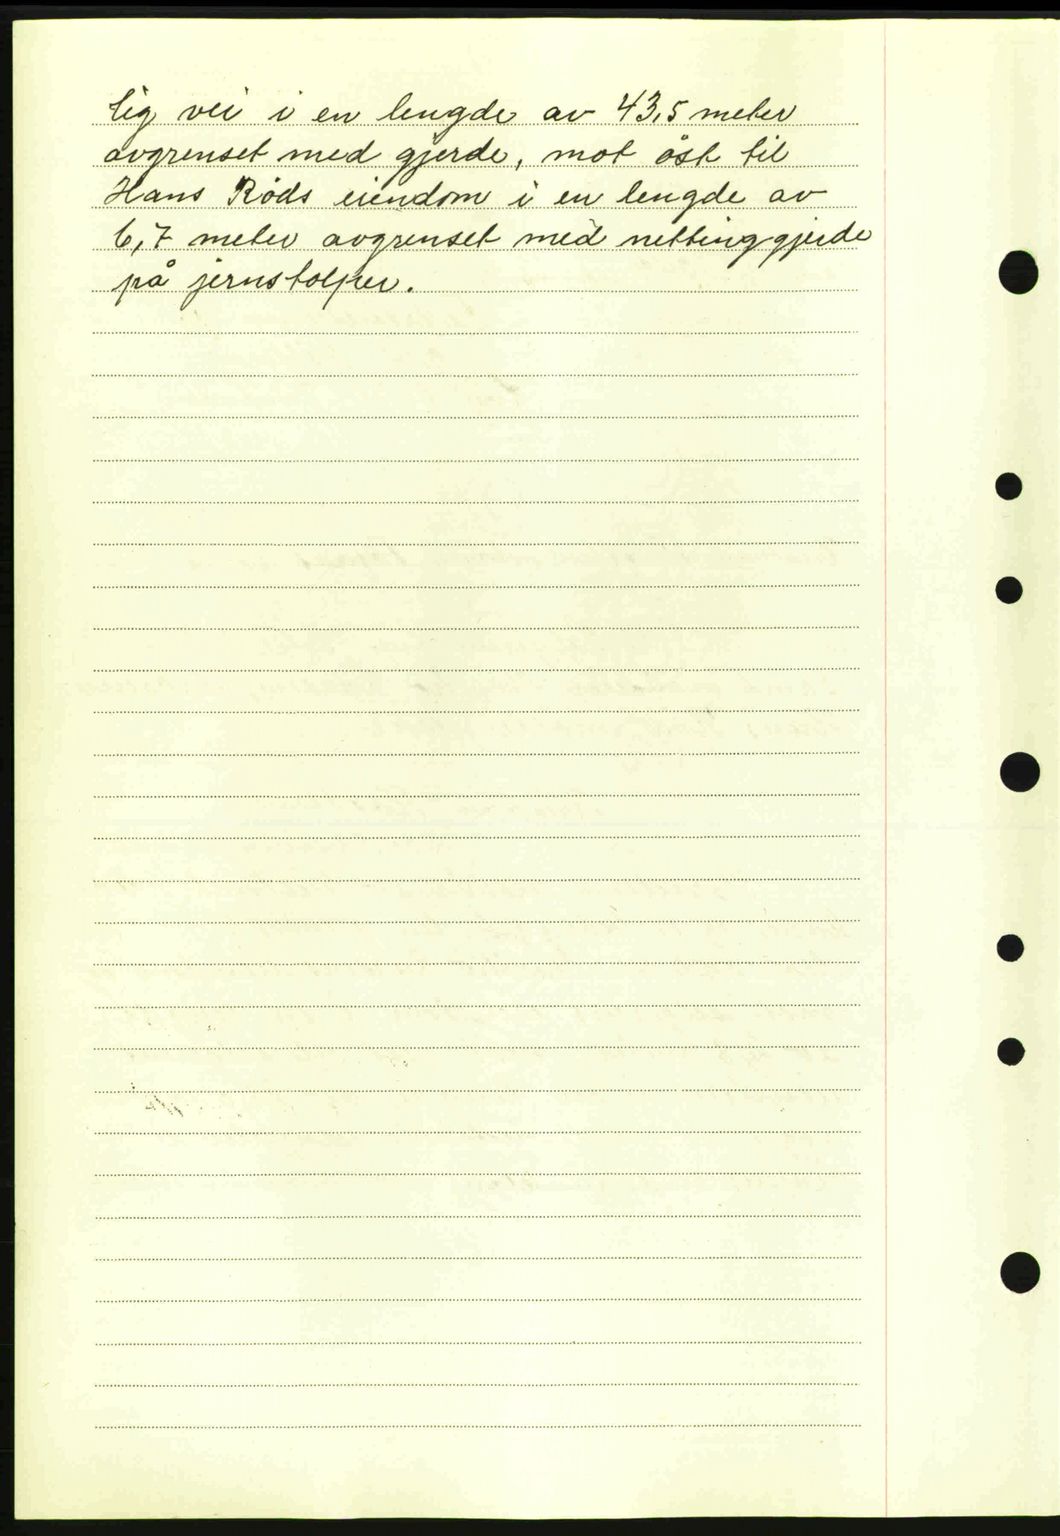 lig vei i en lengde av 43,5 meter
avgrenset med gjerde, mot øst til
Hans Røds eiendom i en lengde av
6,7 meter avgrenset med nettinggjerde
på jernstolper.